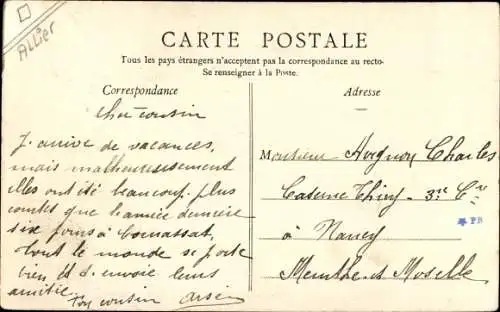 Allier
CARTE POSTALE
Tous les pays étrangers n'acceptent pas la correspondance au recto-
Se renseigner à la Poste.
Correspondance
Cher cousin
J. arrive de vacances,
mais malheureusement
elles ont été beaucoup plus
courtes que l'année dernière
six jours à
tout le monde se porte
bien et t. envoie leurs
amitiés.
Ton cousin
Adresse
Monsieur Avignon Charles
Caserne Thiry 3e Cie
à Nancy
Meurthe et Moselle
PB